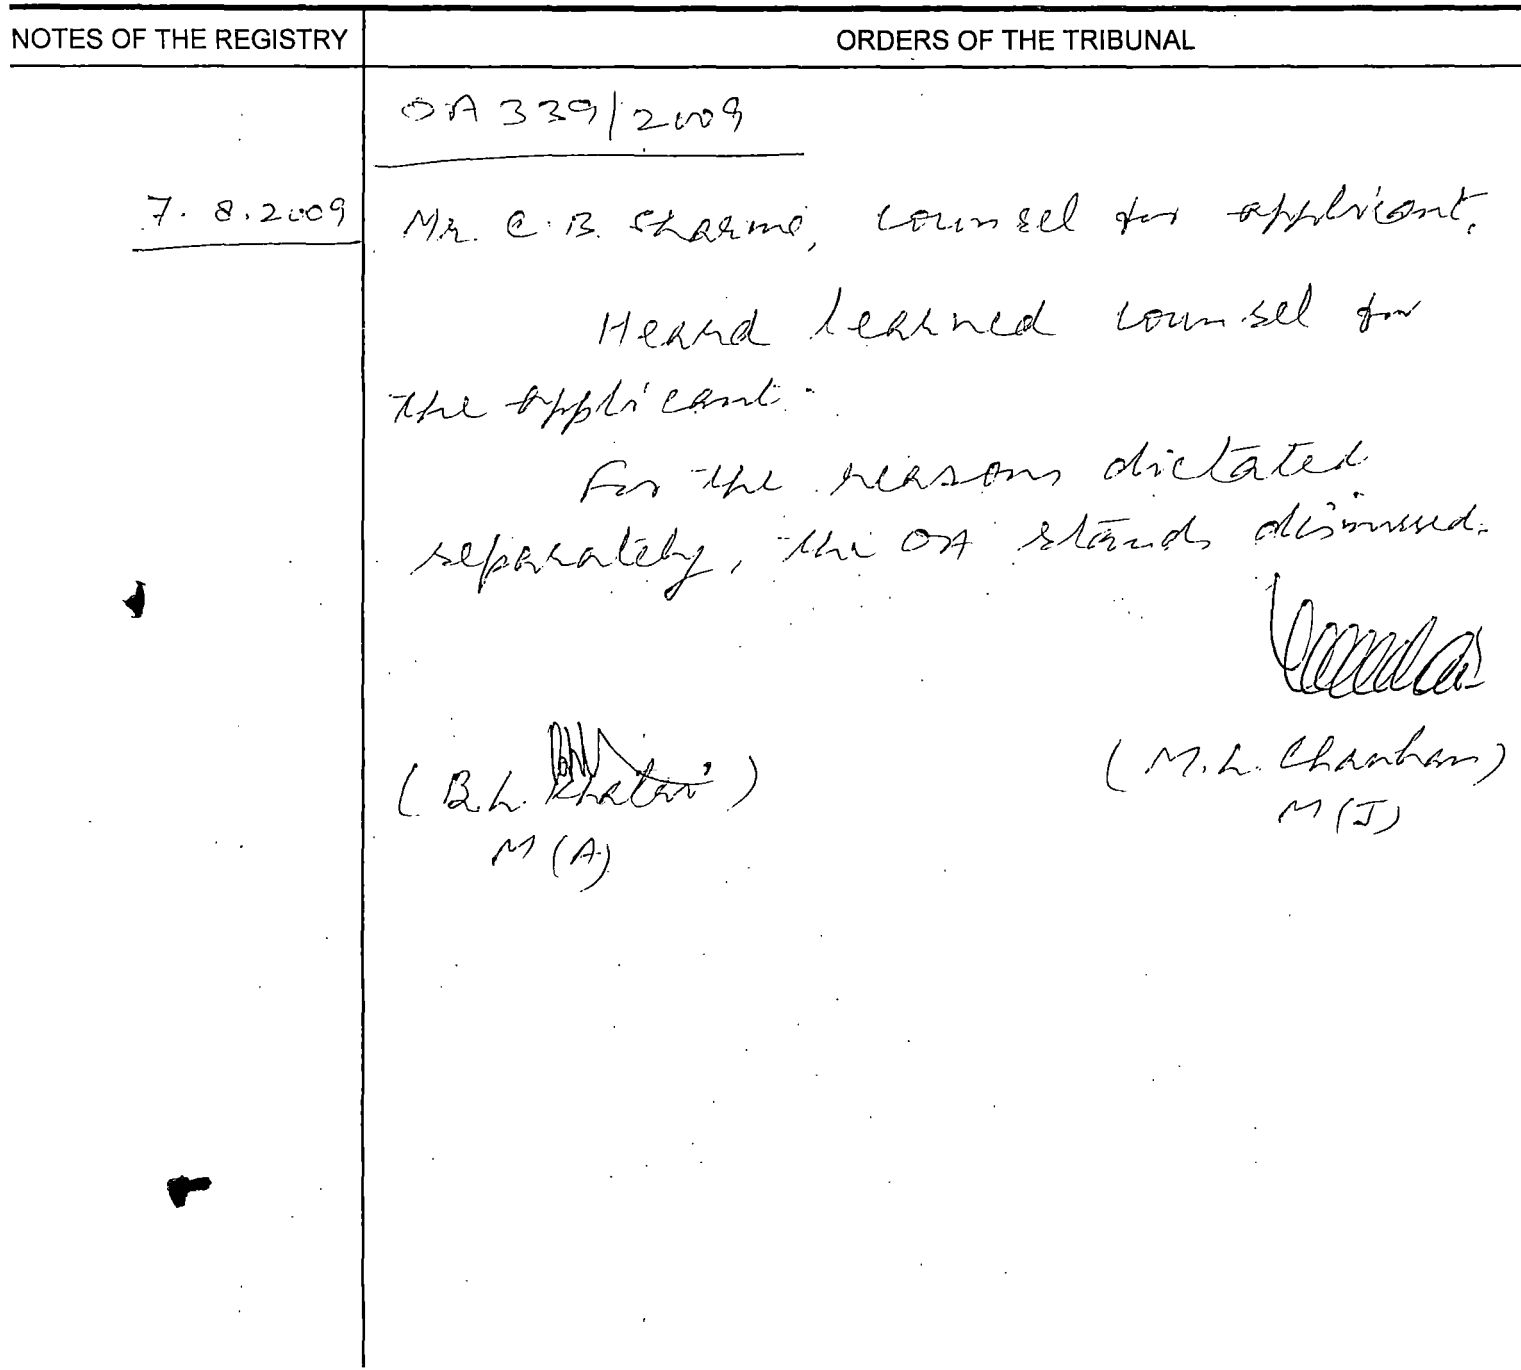 NOTES OF THE REGISTRY
ORDERS OF THE TRIBUNAL
OA 339/2009
7.8.2009
Mr. C.B. Sharma, counsel for applicant.
Heard learned counsel for
the applicant.
For the reasons dictated
separately, the OA stands dismissed.
(B.L. Khatri)
M(A)
(M.L. Chauhan)
M(J)